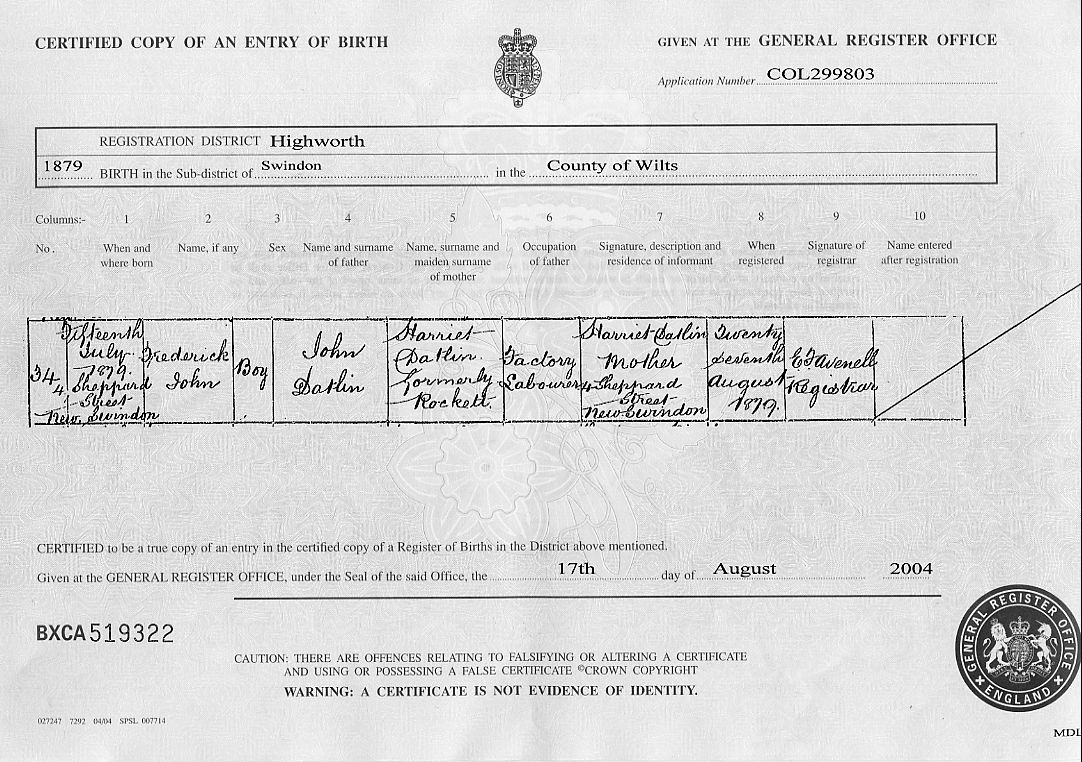 CERTIFIED COPY OF AN ENTRY OF BIRTH
GIVEN AT THE GENERAL REGISTER OFFICE
Application Number COL299803
REGISTRATION DISTRICT Highworth
1879 BIRTH in the Sub-district of Swindon in the County of Wilts
Columns:- 1 2 3 4 5 6 7 8 9 10
No. When and where born Name, if any Sex Name and surname of father Name, surname and maiden surname of mother Occupation of father Signature, description and residence of informant When registered Signature of registrar Name entered after registration
34
Fifteenth
July
1879
4 Sheppard
Street
New Swindon
Frederick
John
Boy
John
Datlin
Harriet
Datlin
formerly
Rockett
Factory
Labourer
Harriet Datlin
Mother
4 Sheppard
Street
New Swindon
Twenty
Seventh
August
1879.
Registrar
CERTIFIED to be a true copy of an entry in the certified copy of a Register of Births in the District above mentioned.
Given at the GENERAL REGISTER OFFICE, under the Seal of the said Office, the 17th day of August 2004
BXCA 519322
CAUTION: THERE ARE OFFENCES RELATING TO FALSIFYING OR ALTERING A CERTIFICATE
AND USING OR POSSESSING A FALSE CERTIFICATE ©CROWN COPYRIGHT
WARNING: A CERTIFICATE IS NOT EVIDENCE OF IDENTITY.
GENERAL REGISTER OFFICE
ENGLAND
027247 7292 04/04 SPSL 007714